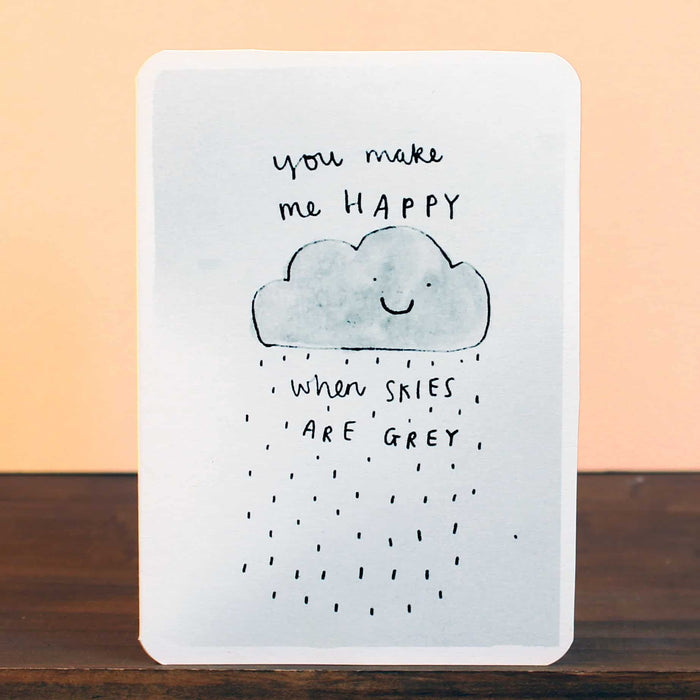 you make
me HAPPY
when SKIES
ARE GREY